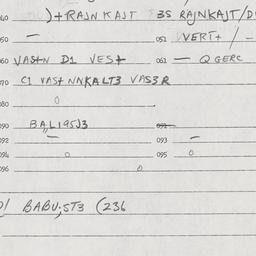 040 )+RAJNKAJT 3S RAJNKAJT/D
050 — 051 VERT+ / -
060 VAS+N D1 VES+ 061 — QGERC
070 C1 VAS+NNKALT3 VAS3R
080 0
090 BA,L195J3 091
092 — 093 —
094 0 095 0
096 0
BABU;ST3 (236